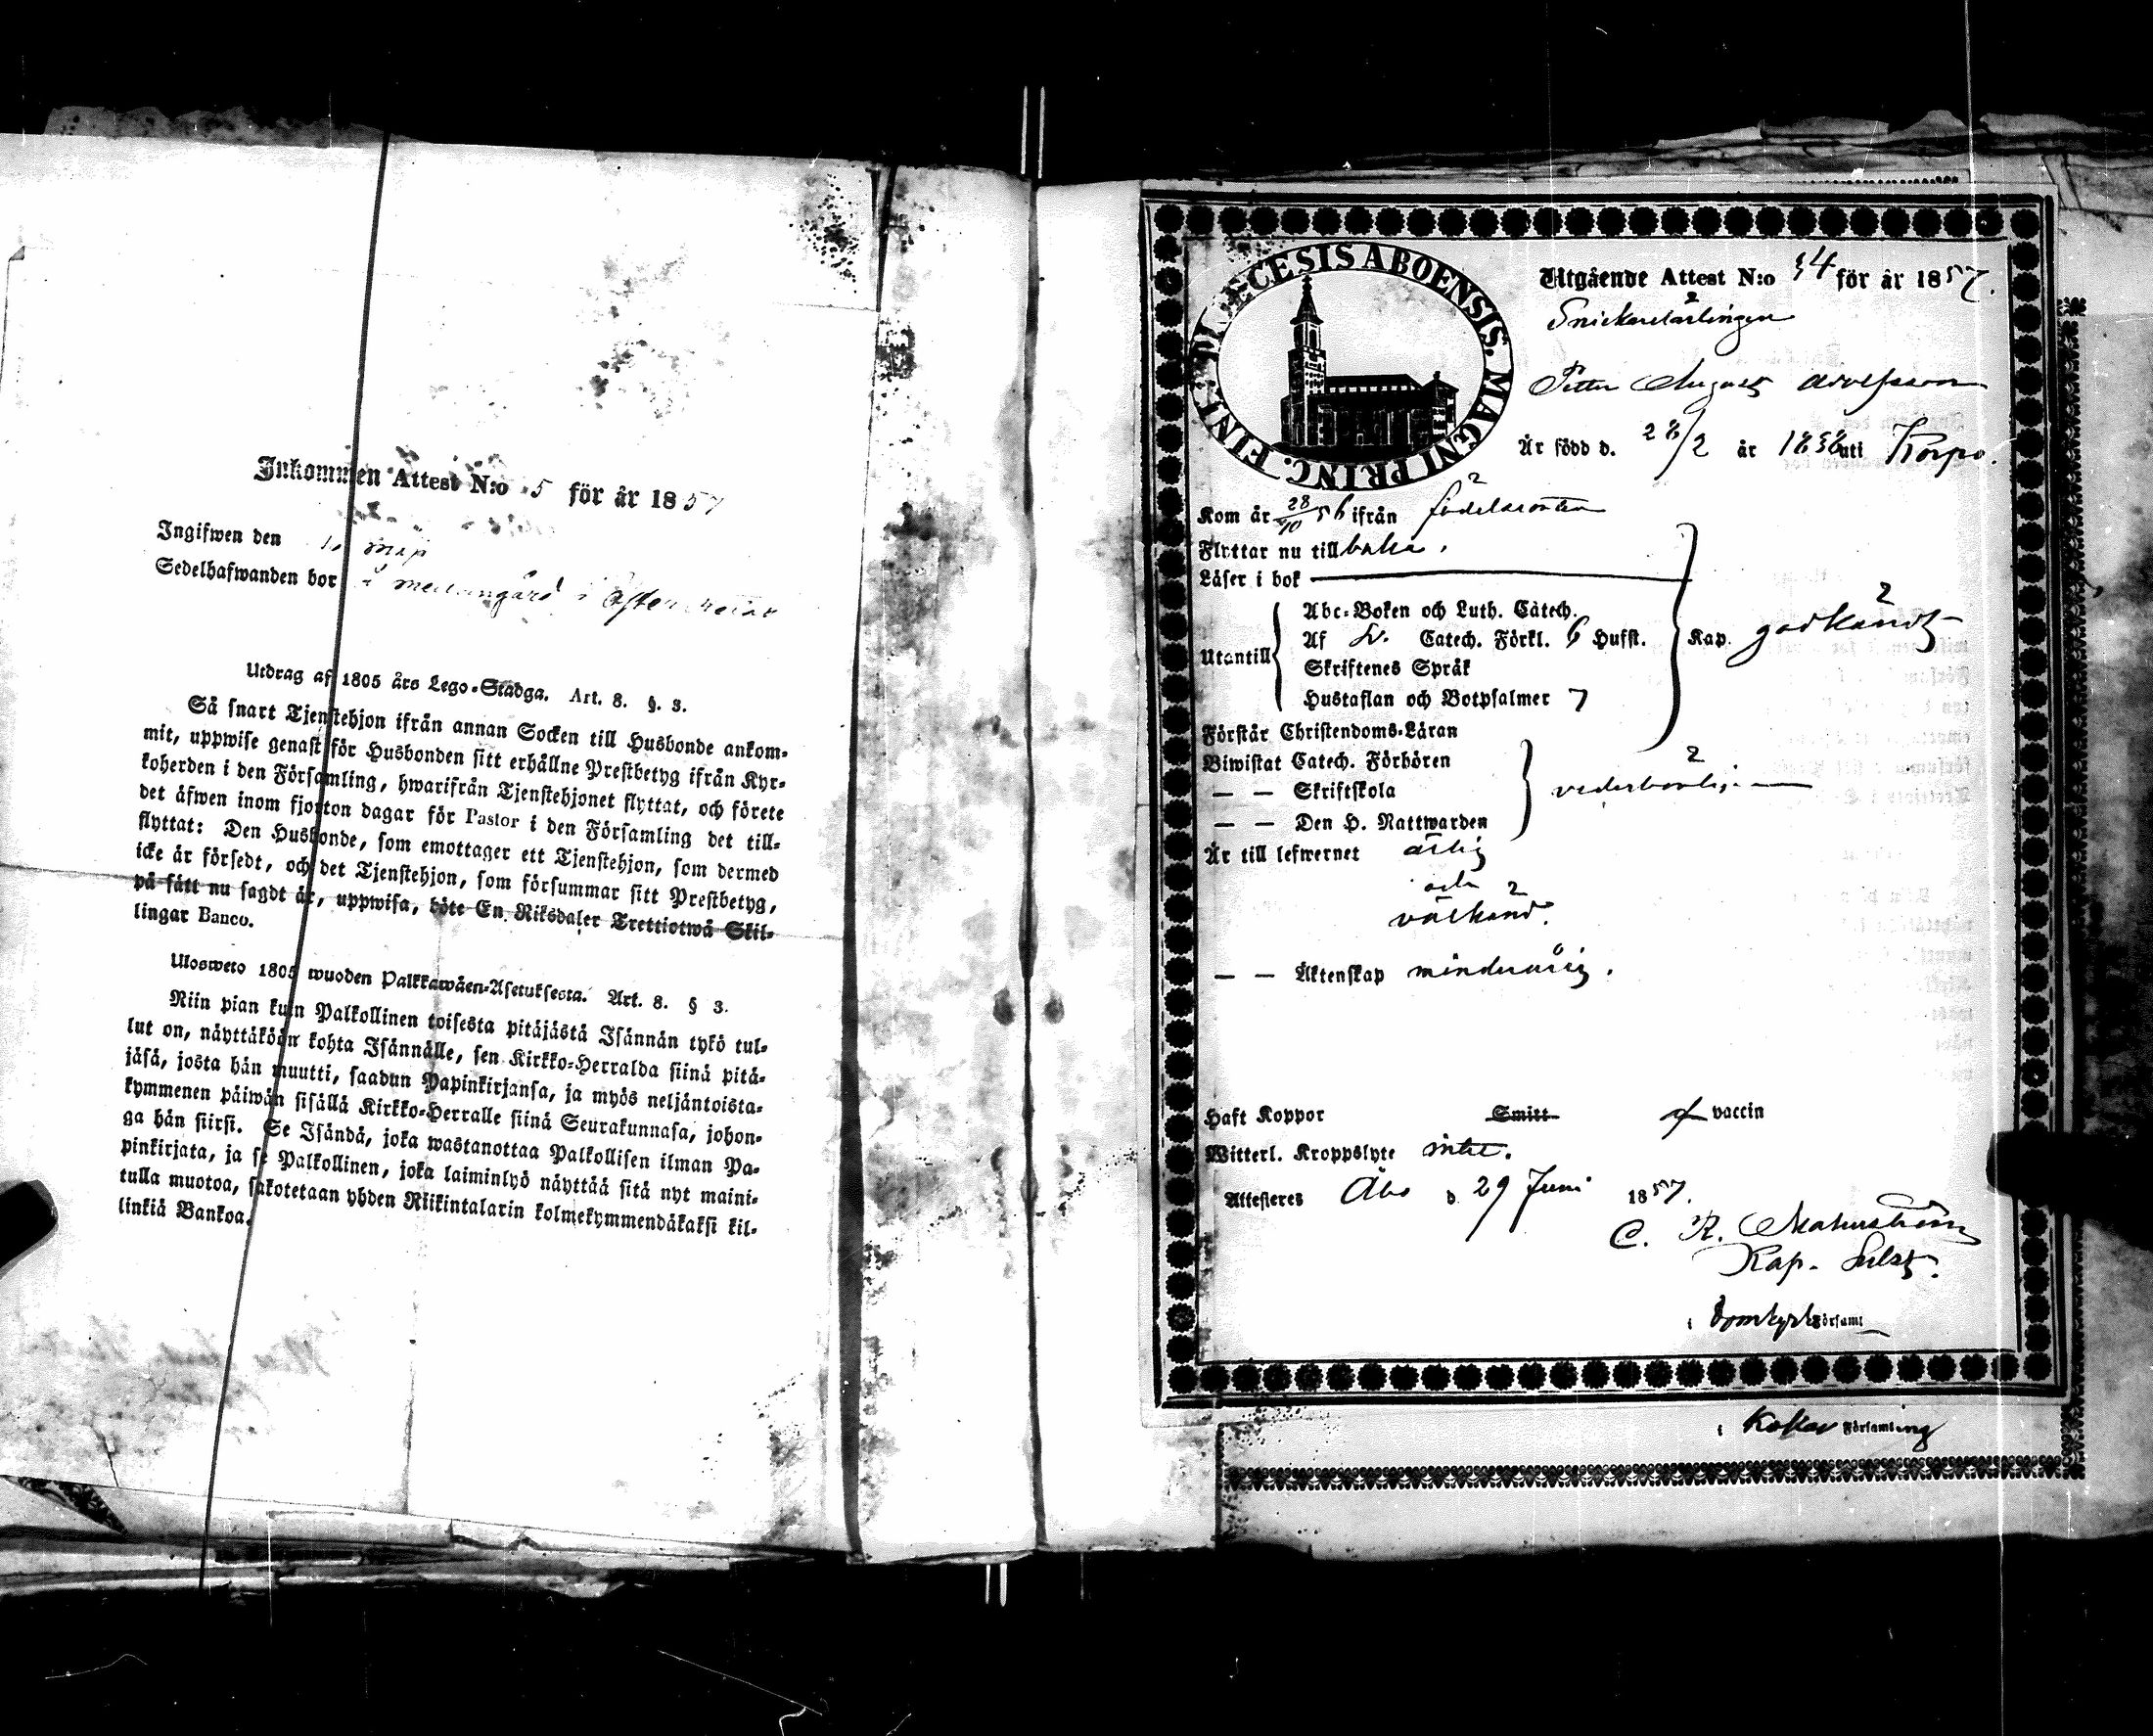 Inkommen Attest N:o 5 för år 1857
Ingifwen den maj
Sedelhafwanden bor i
Utdrag af 1805 års Lego-Stadga. Art. 8. §. 3.
Så snart Tjenstehjon ifrån annan Socken till Husbonde ankom-
mit, uppwise genast för Husbonden sitt erhållne Prestbetyg ifrån Kyr-
koherden i den Församling, hwarifrån Tjenstehjonet flyttat, och förete
det äfwen inom fjorton dagar för Pastor i den Församling det till-
flyttat: Den Husbonde, som emottager ett Tjenstehjon, som dermed
icke är försedt, och det Tjenstehjon, som försummar sitt Prestbetyg,
på sätt nu sagdt är, uppwisa, böte En Riksdaler Trettiotwå Skil-
lingar Banco.
Ulosweto 1805 wuoden Palkkawäen-Asetuksesta. Art. 8. § 3.
Niin pian kuin Palkollinen toisesta pitäjästä Isännän tykö tul-
lut on, näyttäköön kohta Isännälle, sen Kirkko-Herralda siinä pitä-
jäsä, josta hän muutti, saadun Papinkirjansa, ja myös neljäntoista-
kymmenen päiwän sisällä Kirkko-Herralle siinä Seurakunnasa, johon-
ga hän siirsi. Se Isändä, joka wastanottaa Palkollisen ilman Pa-
pinkirjata, ja se Palkollinen, joka laiminlyö näyttää sitä nyt maini-
tulla muotoa, sakotetaan yhden Riikintalarin kolmekymmendäkaksi kil-
linkiä Bankoa.
DIŒCESIS ABOENSIS. MAGNI PRINC. FINL.
Utgående Attest N:o 54 för år 1857.
Snickarelärlingen
Petter August Adolfsson
Är född d. 28/2 år 1838 uti Korpo.
Kom år 28/10 56 ifrån födelseorten
Flyttar nu till baka.
Läser i bok
Utantill
Abc-Boken och Luth. Catech.
Af Sv. Catech. Förkl. 6 Hufst.
Skriftenes Språk
Hustaflan och Botpsalmer 7
Kap. godkändt
Förstår Christendoms-Läran
Biwistat Catech. Förhören
— — Skriftskola vederbörligen
— — Den H. Nattwarden
Är till lefwernet ärlig
och
välkänd.
— — Äktenskap minderårig.
Haft Koppor Smitt af vaccin
Witterl. Kroppslyte intet.
Attesteres Åbo d. 29 Juni 1857.
C. R. Malmström
Kap. Subst.
i Domkyrko Församl
i Kökar Församling